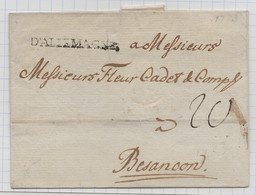 D'ALLEMAGNE
a Messieurs
Messieurs Fleur Cadet & Comp
20
a
Besancon.